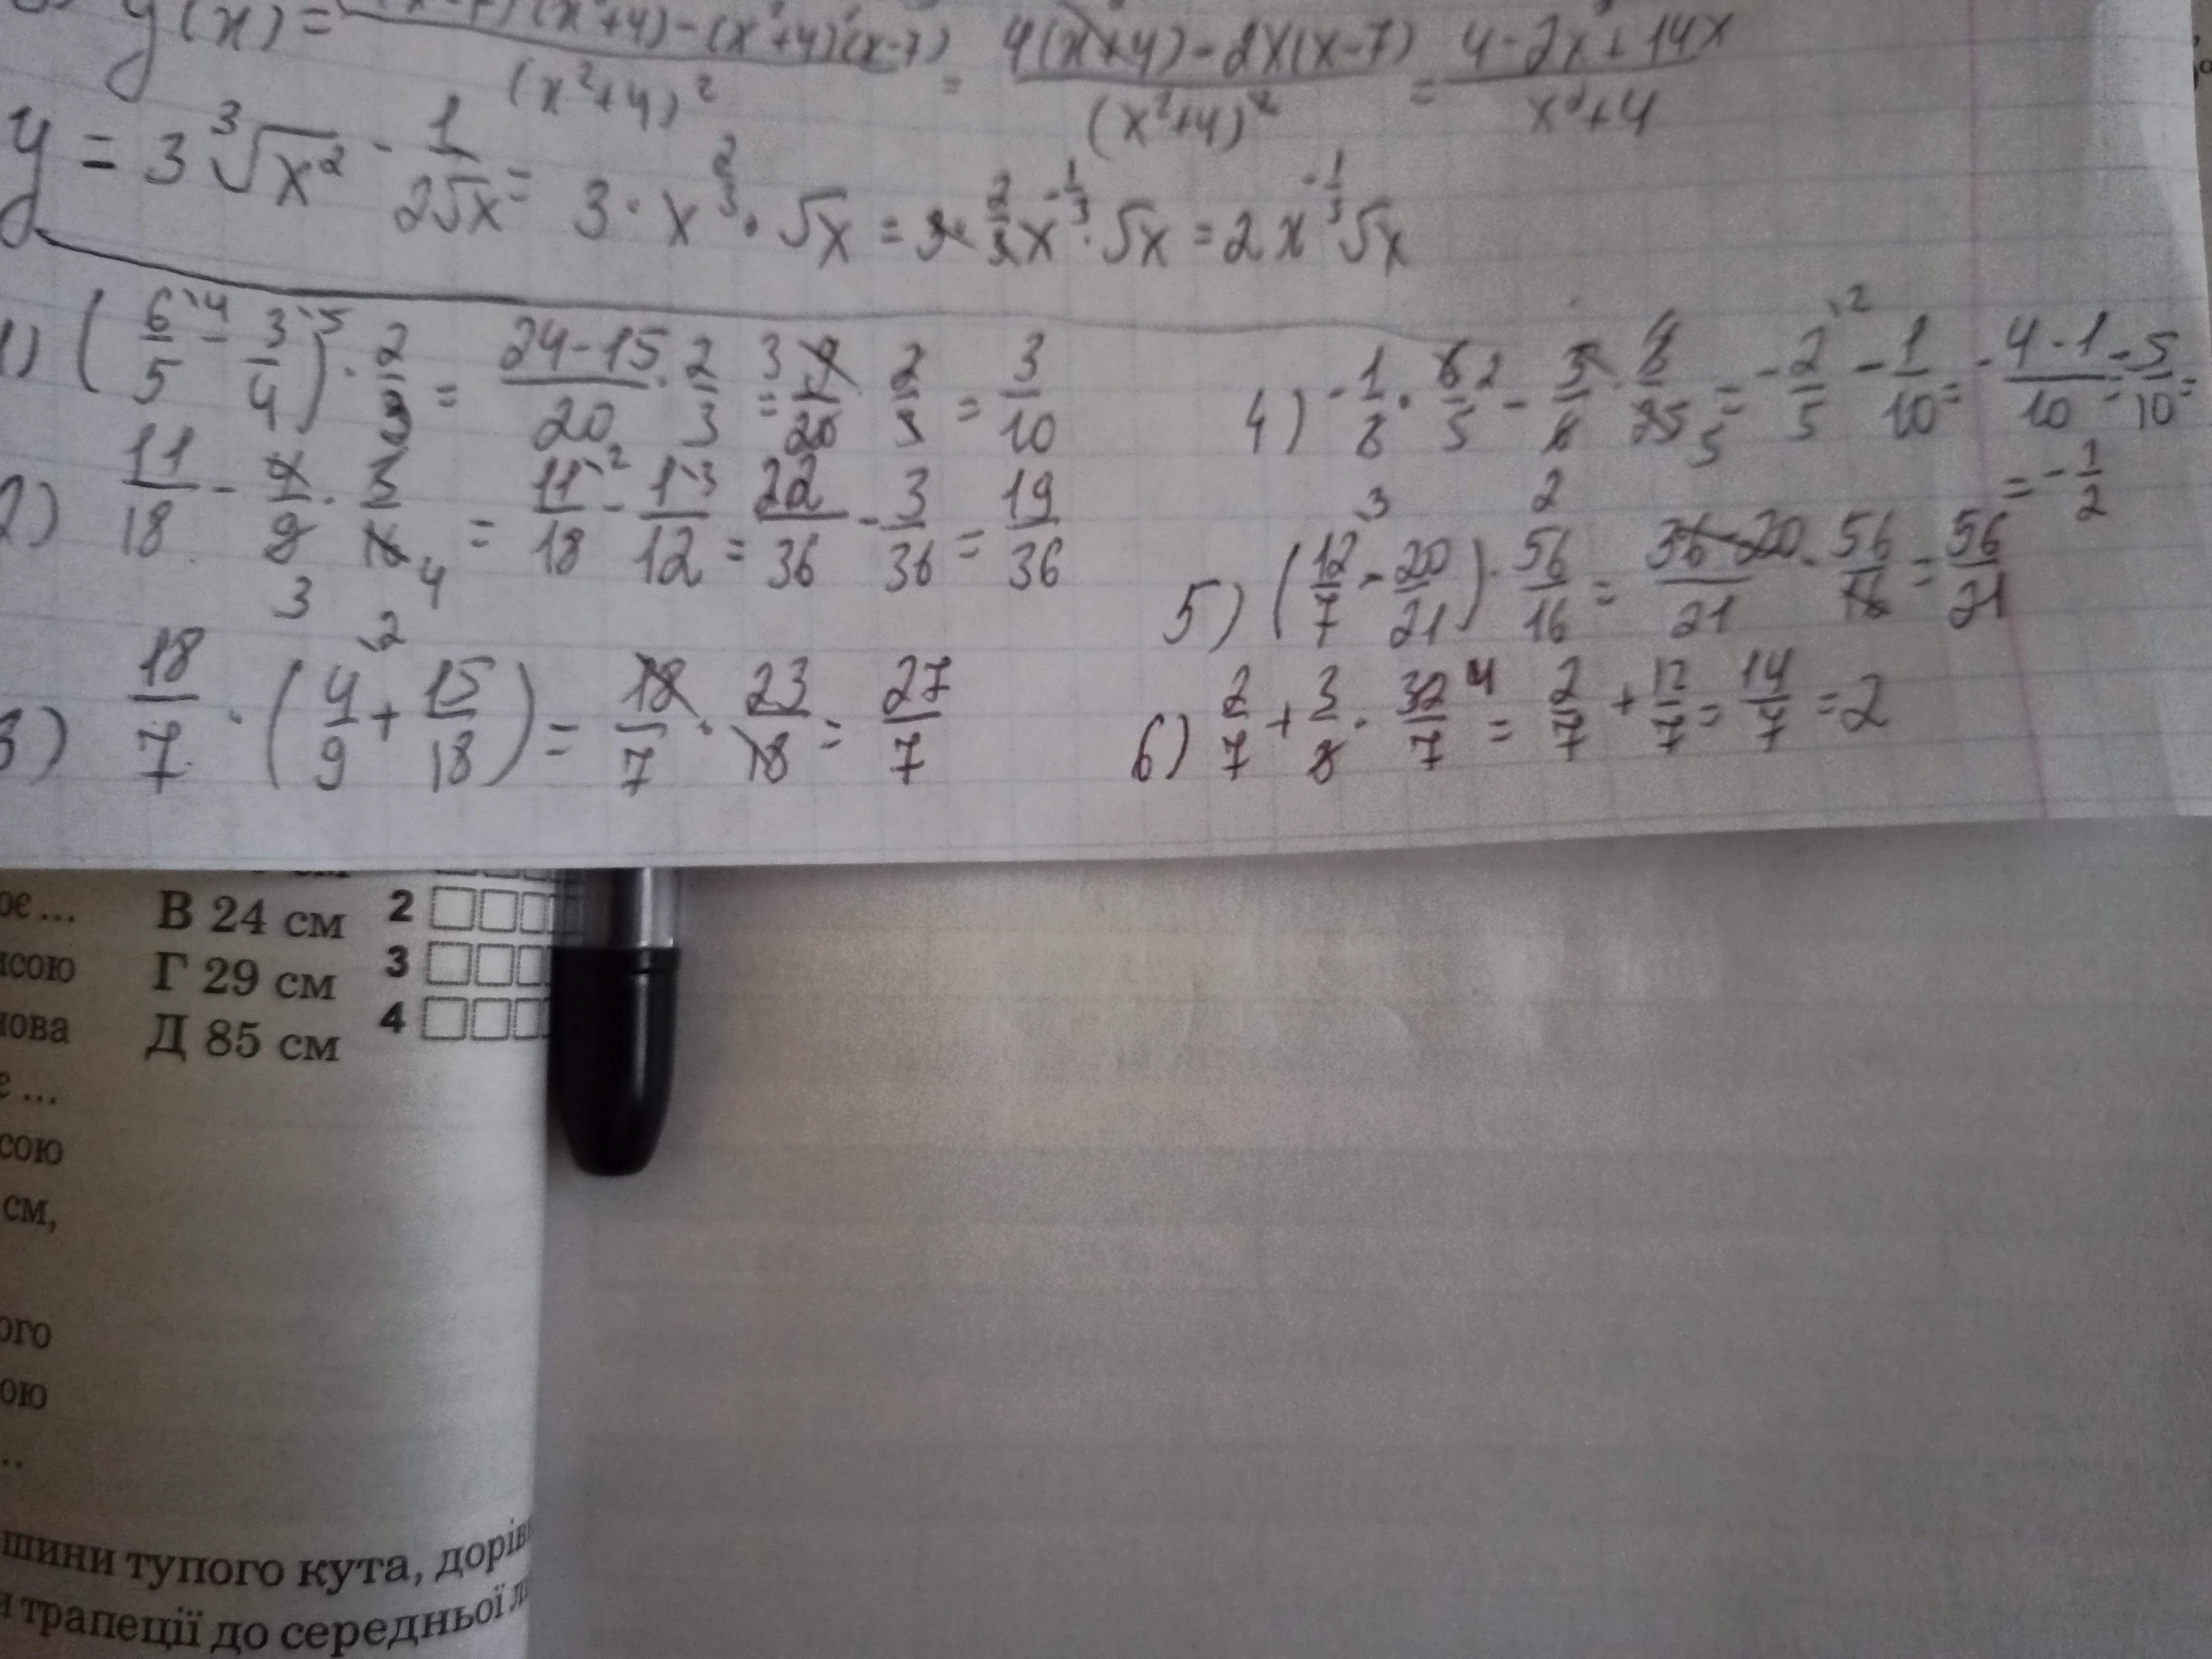 y'(x) = (x²+4) - (x²+4)'(x-7) / (x²+4)² = 4(x+4) - 2x(x-7) / (x²+4)² = 4-2x+14x / x²+4
y = 3∛x² - 1/2√x = 3 · x^2/3 · √x = 3 · 2/3 x^-1/3 · √x = 2x^-1/3 √x
1) (6/5 - 3/4) · 2/3 = 24-15/20 · 2/3 = 9/20 · 2/3 = 3/10
2) 11/18 - 4/9 · 3/16 = 11/18 - 1/12 = 22/36 - 3/36 = 19/36
3) 18/7 · (4/9 + 15/18) = 18/7 · 23/18 = 27/7
4) -1/3 · 6/5 - 5/8 · 4/25 = -2/5 - 1/10 = -4-1/10 = -5/10 =
= -1/2
5) (12/7 - 20/21) · 56/16 = 36-20/21 · 56/16 = 56/21
6) 2/7 + 3/8 · 32/7 = 2/7 + 12/7 = 14/7 = 2
ює ... В 24 см 2
исою Г 29 см 3
нова Д 85 см 4
є ...
сою
см,
ого
ою
..
шини тупого кута, дорівн
и трапеції до середньої лі